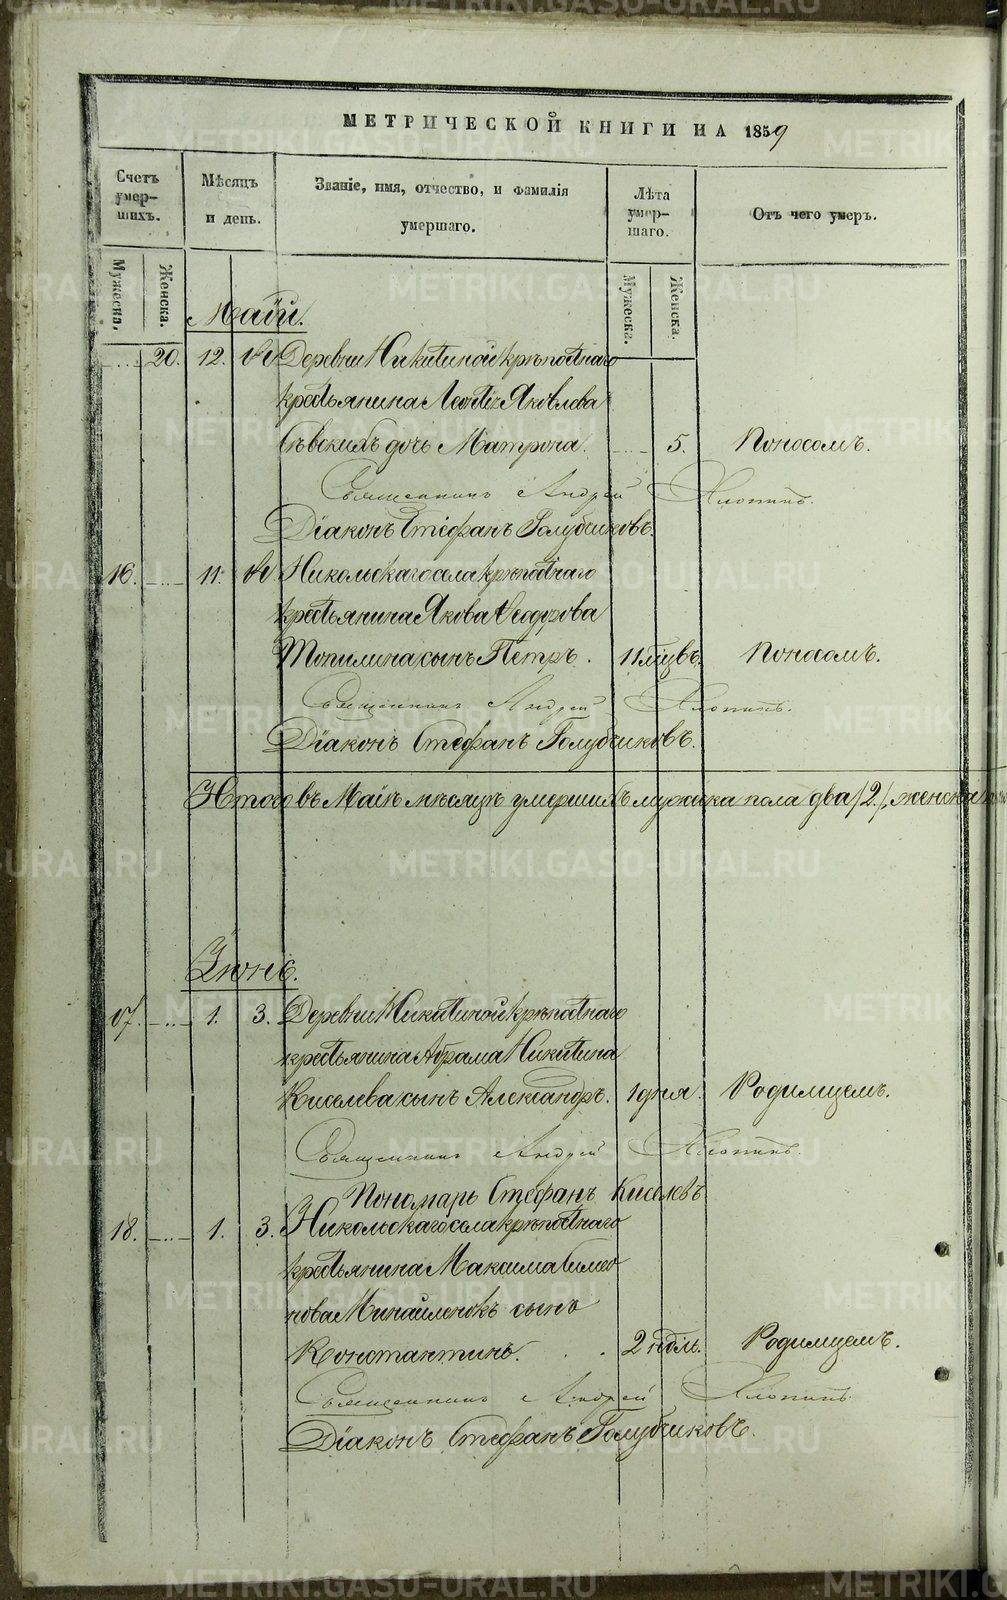 МЕТРИЧЕСКОЙ КНИГИ НА 1859
Счетъ умер-шихъ.
Мѣсяцъ и день.
Званіе, имя, отчество, и фамилія умершаго.
Лѣта умер-шаго.
Отъ чего умеръ.
Мужеска.
Женска.
Мужеска.
Женска.
Май.
20. 12. Деревни Никитиной крѣпостнаго
крестьянина Леонтія Яковлева
дочь Матрона. 5. Поносомъ.
Священникъ Андрей Хлопинъ.
Діаконъ Стефанъ Голубчиковъ.
16. 11. Никольскаго села крѣпостнаго
крестьянина Якова Ѳеодорова
Топилина сынъ Петръ. 11 мѣцвъ. Поносомъ.
Священникъ Андрей Хлопинъ.
Діаконъ Стефанъ Голубчиковъ.
Итого въ Маіѣ мѣсяцѣ умершихъ мужска пола два /2/, женска
Іюнь.
17. 1. 3. Деревни Никитиной крѣпостнаго
крестьянина Абрама Никитина
Киселева сынъ Александръ. 1 дня. Родимцемъ.
Священникъ Андрей Хлопинъ.
Пономарь Стефанъ Киселевъ
18. 1. 3. Никольскаго села крѣпостнаго
крестьянина Максима Симео
нова Минайленокъ сынъ
Константинъ. 2 ндль. Родимцемъ.
Священникъ Андрей Хлопинъ.
Діаконъ Стефанъ Голубчиковъ.
METRIKI.GASO-URAL.RU